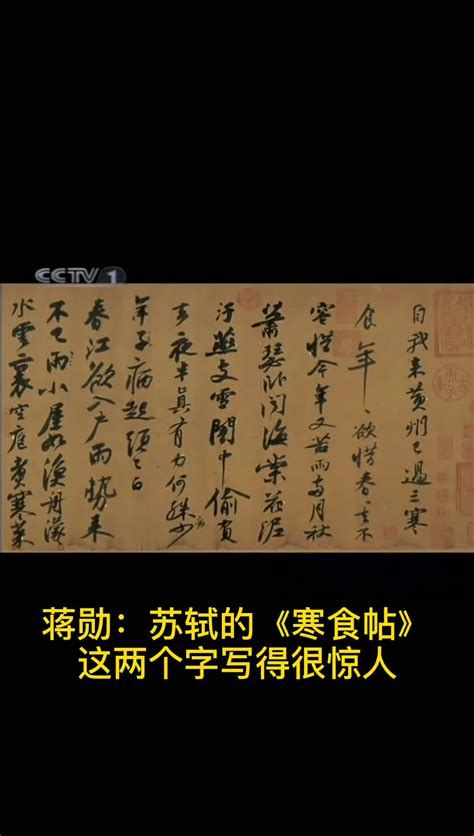 CCTV 1
自我来黄州已過三寒
食年〻欲惜春〻去不
容惜今年又苦雨兩月秋
蕭瑟卧聞海棠花泥
汙燕支雪闇中偷負
去夜半真有力何殊少
年子病起頭已白
春江欲入戶雨勢来
不已雨小屋如漁舟濛
水雲裏空庖煮寒菜
蒋勋：苏轼的《寒食帖》
这两个字写得很惊人